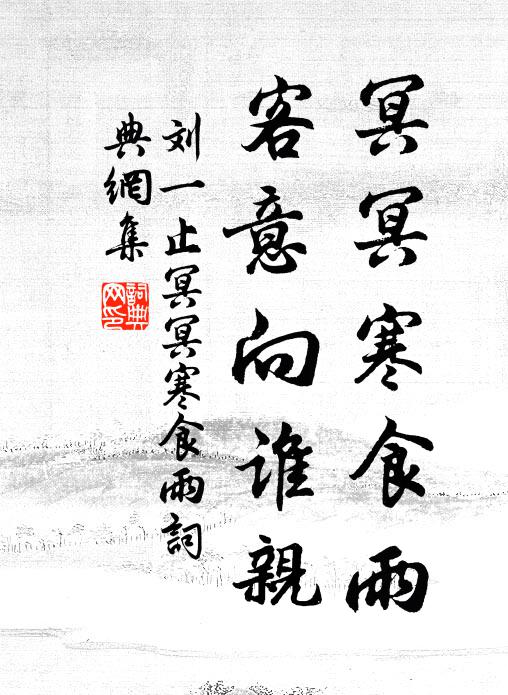 冥冥寒食雨
客意向誰親
刘一止冥冥寒食雨詞
典網集
詞典
网印